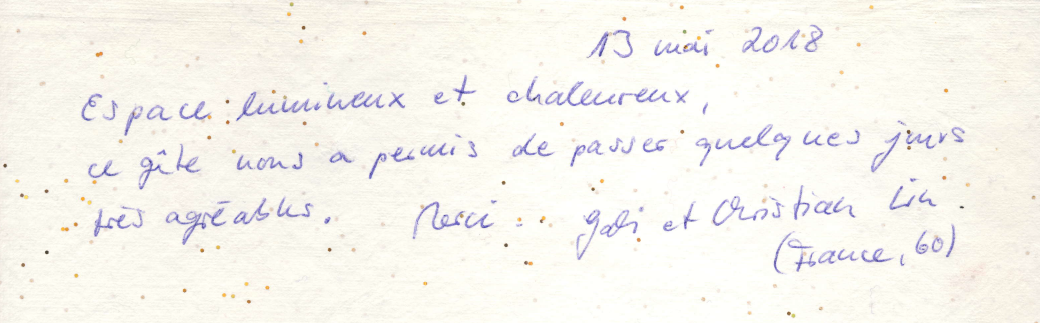 13 mai 2018
Espace lumineux et chaleureux,
ce gîte nous a permis de passer quelques jours
très agréables. Merci.. et Christian Lin
(France, 60)